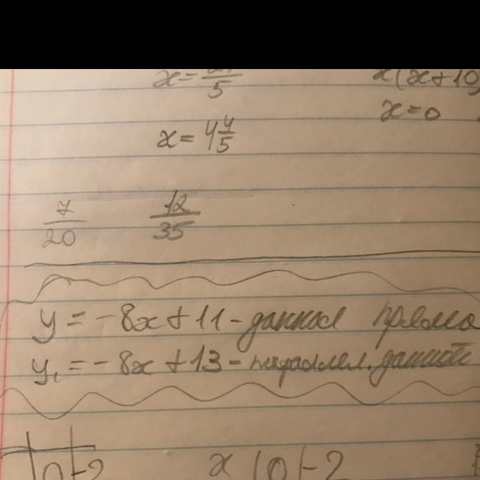 x = 21/5
x(x+10)
x = 0
x = 4 4/5
7/20 12/35
y = -8x + 11 - данная прямо
y₁ = -8x + 13 - параллел. данной
0 | -2
x | 0 | -2